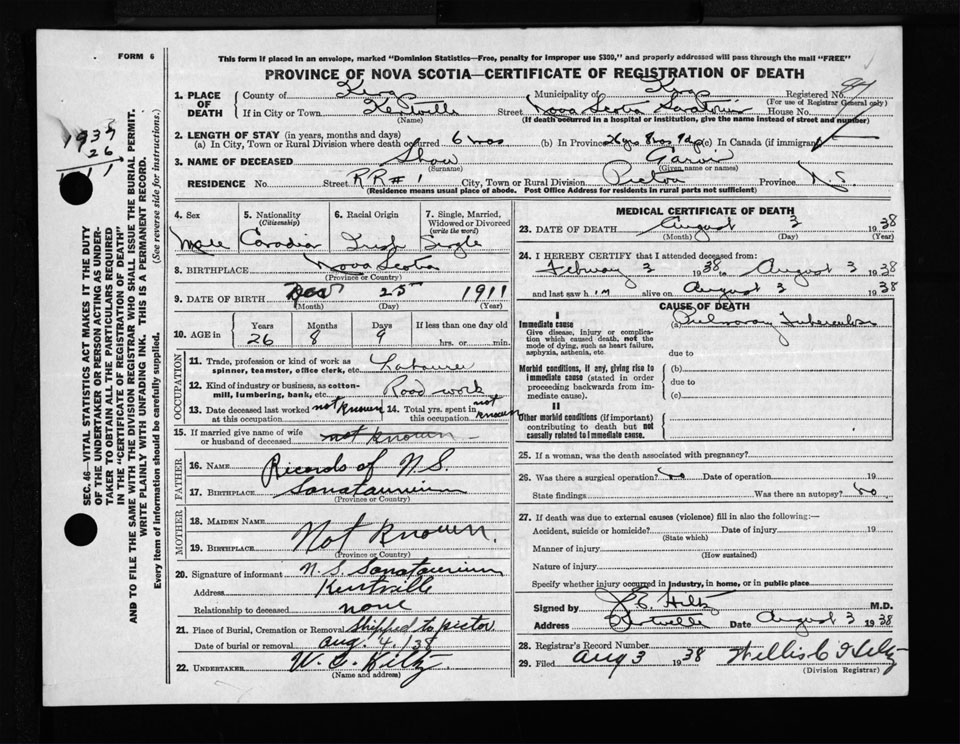 FORM 6
This form if placed in an envelope, marked "Dominion Statistics—Free, penalty for improper use $300," and properly addressed will pass through the mail "FREE"
PROVINCE OF NOVA SCOTIA—CERTIFICATE OF REGISTRATION OF DEATH
SEC. 46—VITAL STATISTICS ACT MAKES IT THE DUTY
OF THE UNDERTAKER OR PERSON ACTING AS UNDER-
TAKER TO OBTAIN ALL THE PARTICULARS REQUIRED
IN THE "CERTIFICATE OF REGISTRATION OF DEATH"
AND TO FILE THE SAME WITH THE DIVISION REGISTRAR WHO SHALL ISSUE THE BURIAL PERMIT.
WRITE PLAINLY WITH UNFADING INK. THIS IS A PERMANENT RECORD.
Every item of information should be carefully supplied. (See reverse side for instructions.)
1937
26
11
1. PLACE OF DEATH
County of Kings Municipality of Kings Registered No.
(For use of Registrar General only)
If in City or Town Kentville Street Nova Scotia Sanatorium House No.
(Name) (If death occurred in a hospital or institution, give the name instead of street and number)
2. LENGTH OF STAY (in years, months and days)
(a) In City, Town or Rural Division where death occurred 6 mos (b) In Province 26 yrs 8 mos 9 dys (c) In Canada (if immigrant)
3. NAME OF DECEASED Shaw Garvin
(Surname) (Given name or names)
RESIDENCE No. Street RR #1 City, Town or Rural Division Pictou Province NS
(Residence means usual place of abode. Post Office Address for residents in rural parts not sufficient)
4. Sex 5. Nationality 6. Racial Origin 7. Single, Married,
(Citizenship) Widowed or Divorced
(write the word)
Male Canadian Irish Single
8. BIRTHPLACE Nova Scotia
(Province or Country)
9. DATE OF BIRTH 25 1911
(Month) (Day) (Year)
10. AGE in Years Months Days If less than one day old
26 8 9 hrs. or min.
OCCUPATION
11. Trade, profession or kind of work as Labourer
spinner, teamster, office clerk, etc.
12. Kind of industry or business, as cotton- Road work
mill, lumbering, bank, etc.
13. Date deceased last worked not known 14. Total yrs. spent in not known
at this occupation this occupation
15. If married give name of wife
or husband of deceased not known
FATHER
16. NAME Records of N.S.
17. BIRTHPLACE Sanataurium
(Province or Country)
MOTHER
18. MAIDEN NAME
Not Known.
19. BIRTHPLACE
(Province or Country)
20. Signature of informant N.S. Sanataurium
Address Kentville
Relationship to deceased none
21. Place of Burial, Cremation or Removal shipped to pictou
Date of burial or removal aug. 4. /38
22. UNDERTAKER
(Name and address)
MEDICAL CERTIFICATE OF DEATH
23. DATE OF DEATH August 3 1938
(Month) (Day) (Year)
24. I HEREBY CERTIFY that I attended deceased from:
February 3 1938 to August 3 1938
and last saw him alive on August 3 1938
CAUSE OF DEATH
I
Immediate cause (a) Pulmonary Tuberculosis
Give disease, injury or complica-
tion which caused death, not the
mode of dying, such as heart failure,
asphyxia, asthenia, etc. due to
Morbid conditions, if any, giving rise to (b)
immediate cause (stated in order due to
proceeding backwards from im-
mediate cause). (c)
II
Other morbid conditions (if important)
contributing to death but not
causally related to immediate cause.
25. If a woman, was the death associated with pregnancy?
26. Was there a surgical operation? No Date of operation 19
State findings Was there an autopsy? No.
27. If death was due to external causes (violence) fill in also the following:—
Accident, suicide or homicide? Date of injury 19
(State which)
Manner of injury
(How sustained)
Nature of injury
Specify whether injury occurred in industry, in home, or in public place
Signed by M.D.
Address Kentville Date August 3 1938
28. Registrar's Record Number
29. Filed Aug 3 1938
(Division Registrar)